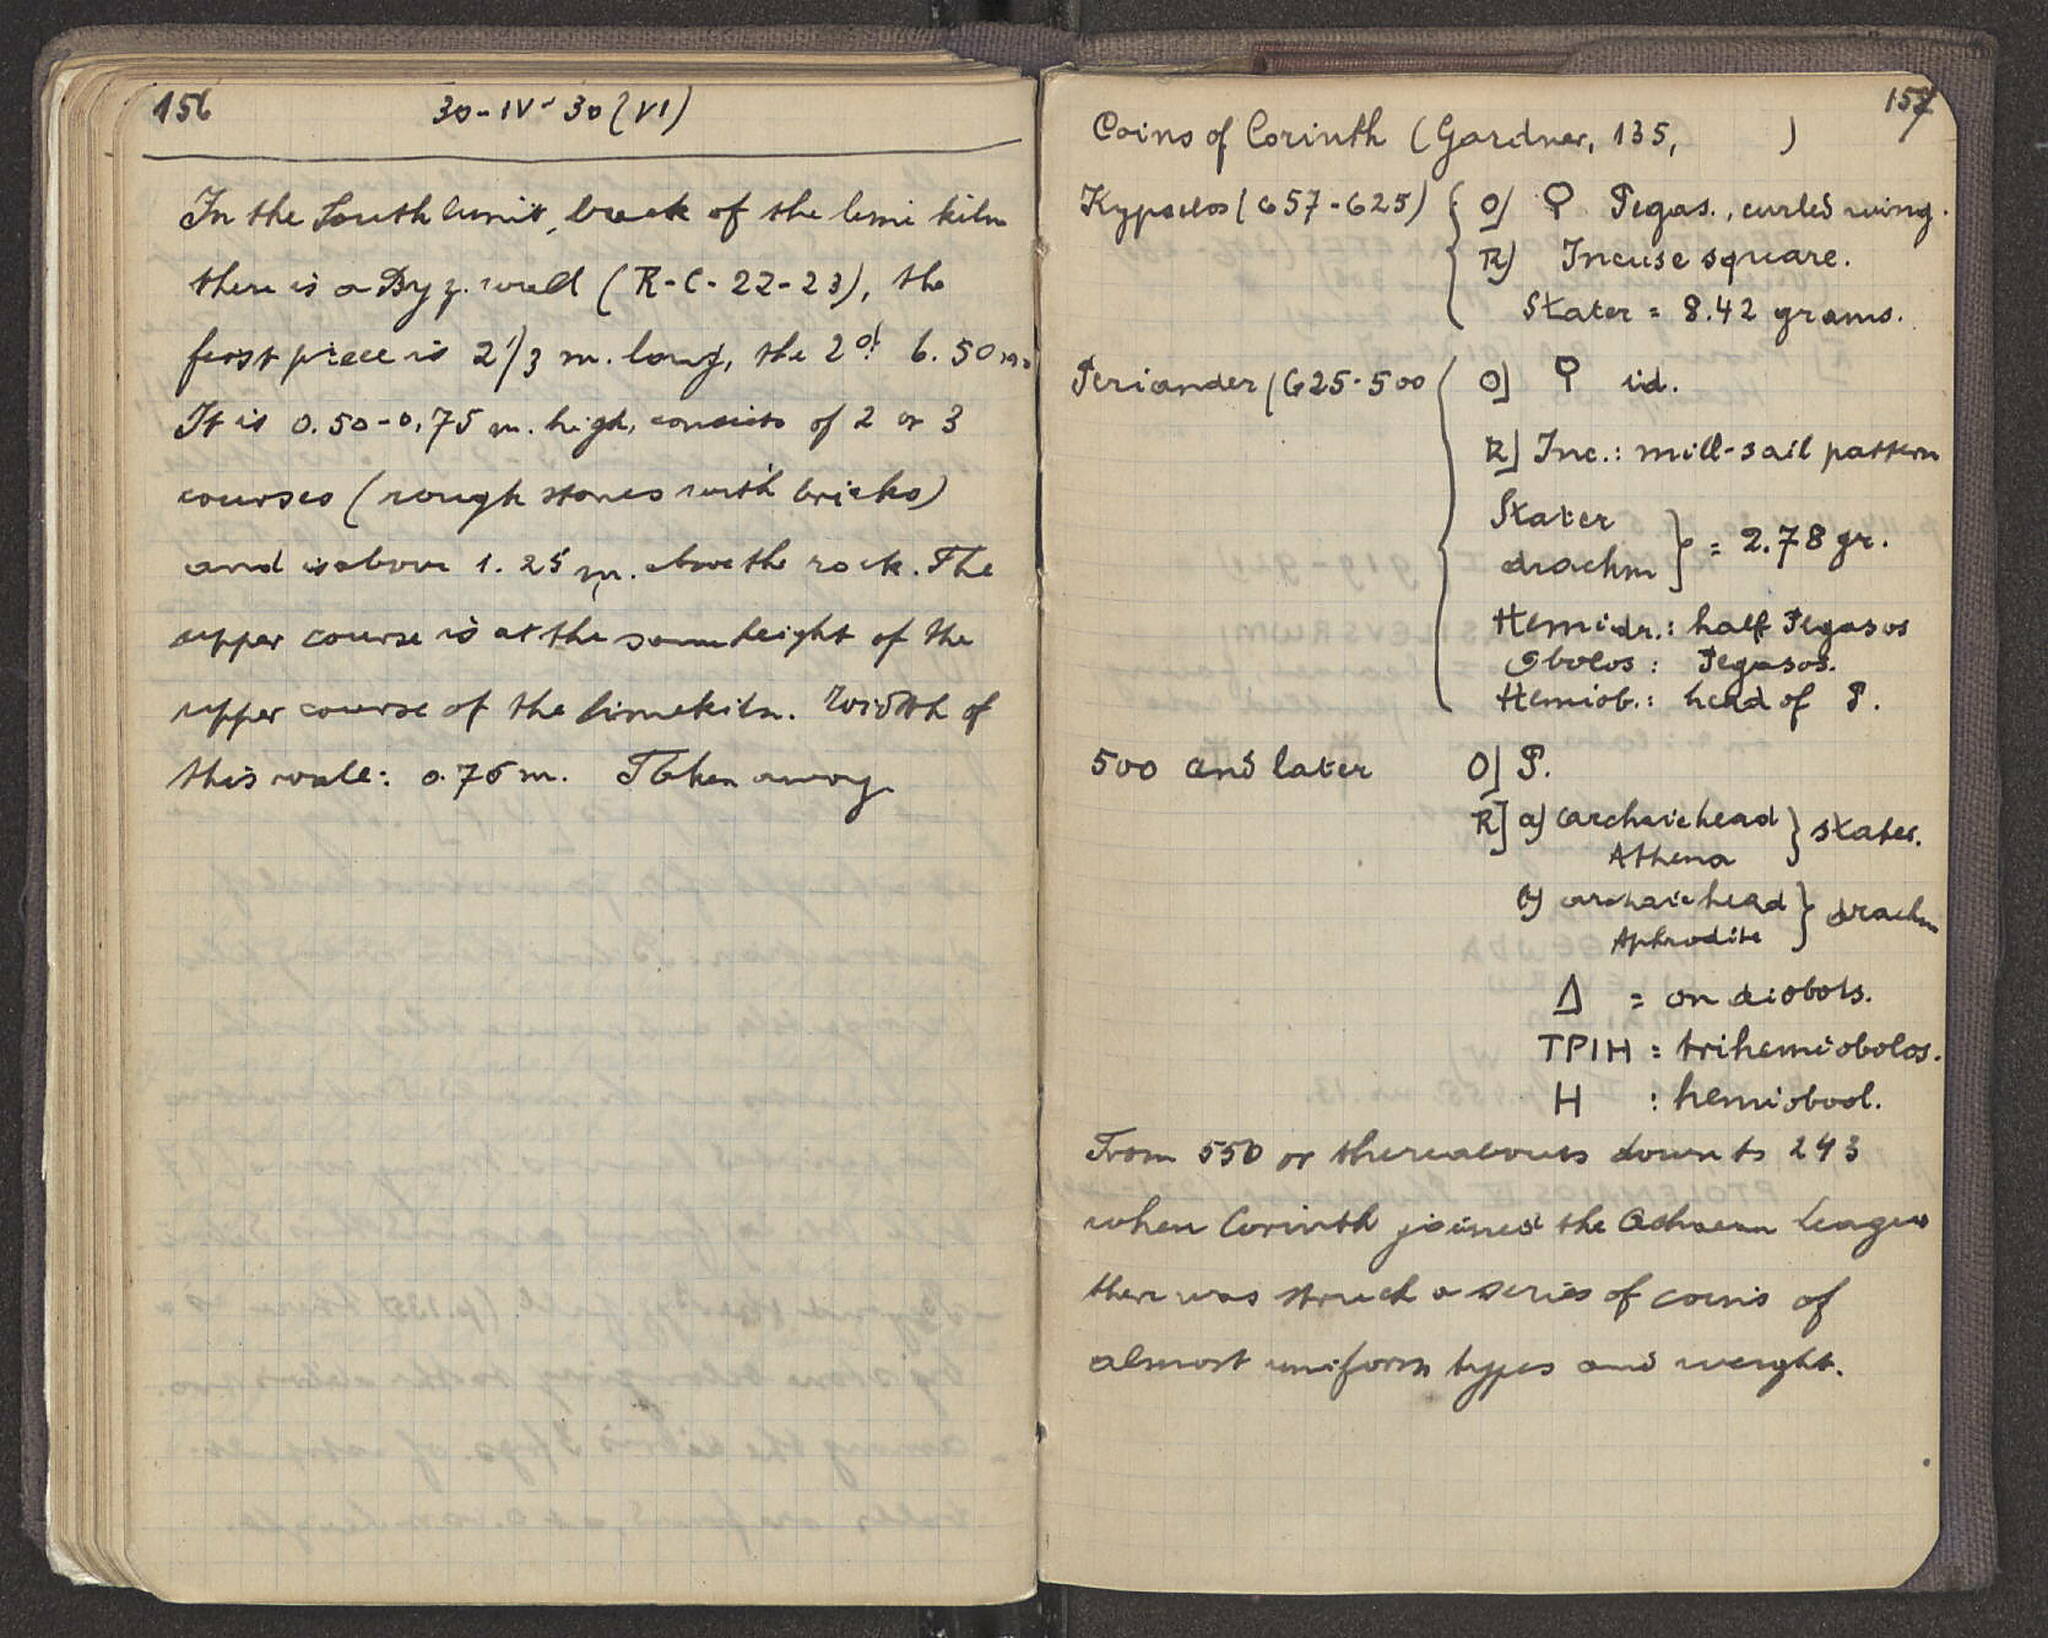 156
30-IV-30 (VI)
In the South limit, back of the lime kiln
there is a Byz. wall (R-C-22-23), the
first piece is 2 1/3 m. long, the 2d 6.50 m.
It is 0.50-0,75 m. high, consists of 2 or 3
courses (rough stones with bricks)
and is above 1.25 m. above the rock. The
upper course is at the same height of the
upper course of the limekiln. Width of
this wall: 0.76 m. Taken away
157
Coins of Corinth (Gardner, 135, )
Kypselos (657-625) { O) Ϙ Pegas., curled wing.
R) Incuse square.
Stater = 8.42 grams.
Periander (625-500 { O] Ϙ id.
R] Inc.: mill-sail pattern
Stater
drachm } = 2.78 gr.
Hemidr.: half Pegasos
Obolos: Pegasos.
Hemiob.: head of P.
500 and later O] P.
R] a) archaic head
Athena } stater.
archaic head
Aphrodite } drachm
Δ = on diobols.
ΤΡΙΗ = trihemiobolos.
H : hemiobol.
From 550 or thereabouts down to 243
when Corinth joined the Achaean League
there was struck a series of coins of
almost uniform types and weight.